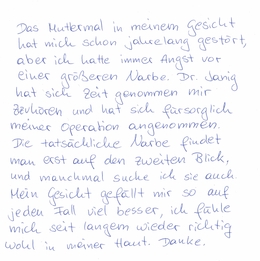 Das Muttermal in meinem Gesicht
hat mich schon jahrelang gestört,
aber ich hatte immer Angst vor
einer größeren Narbe. Dr. Janig
hat sich Zeit genommen mir
zuzuhören und hat sich fürsorglich
meiner Operation angenommen.
Die tatsächliche Narbe findet
man erst auf den zweiten Blick,
und manchmal suche ich sie auch.
Mein Gesicht gefällt mir so auf
jeden Fall viel besser, ich fühle
mich seit langem wieder richtig
wohl in meiner Haut. Danke.